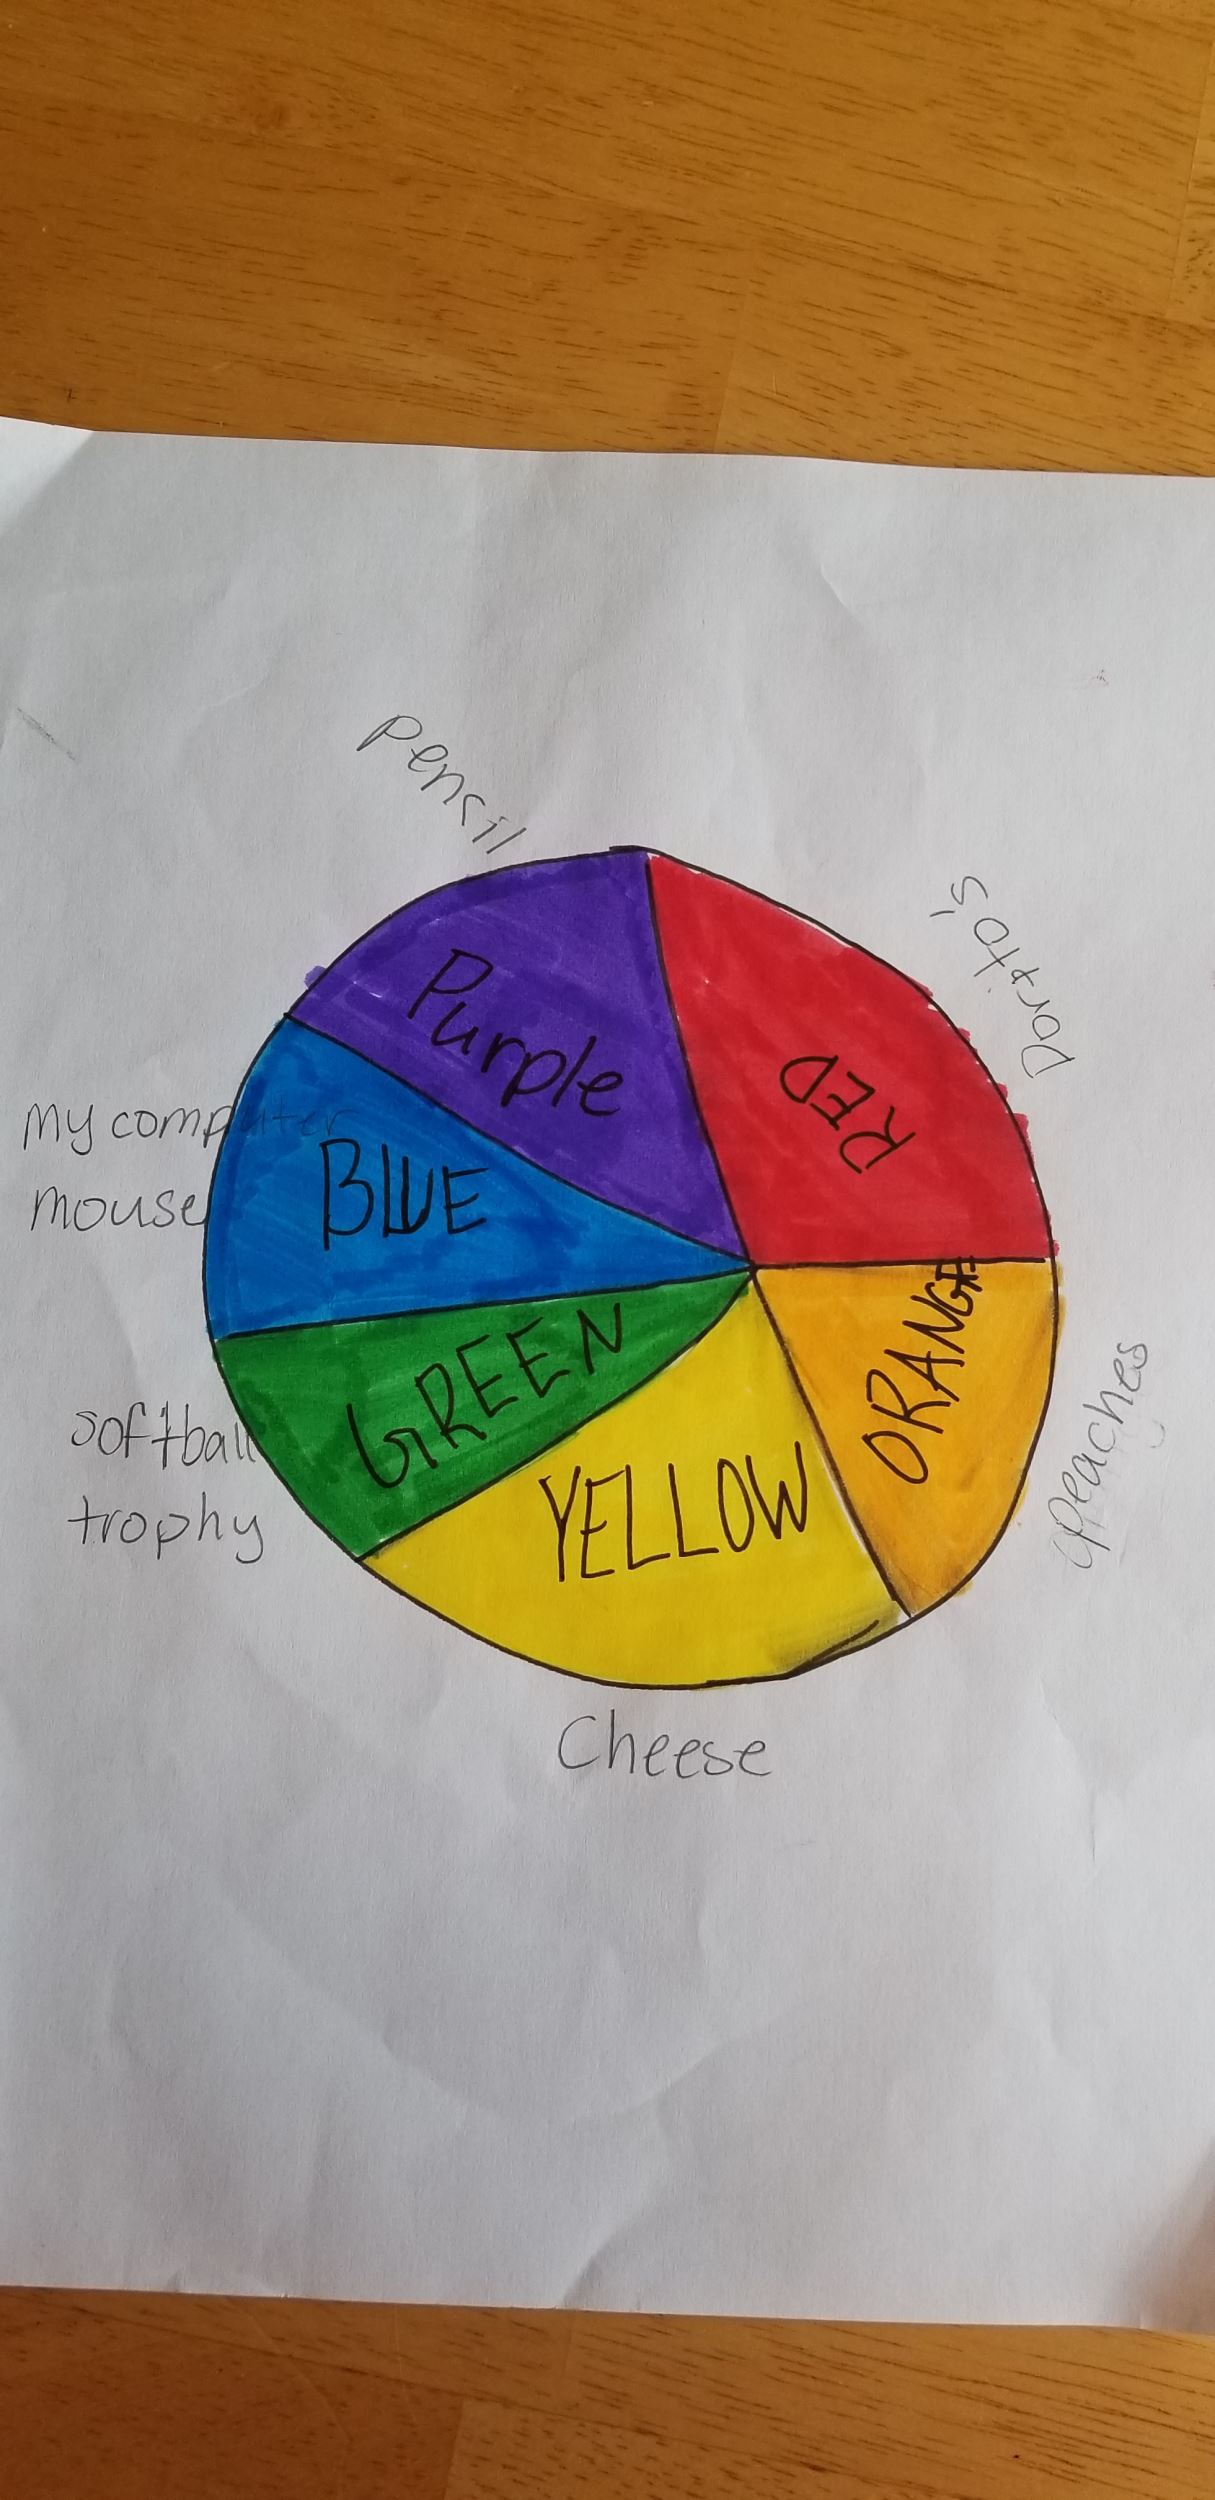 pencil
Dorito's
Purple
RED
my computer
mouse
BLUE
GREEN
ORANGE
softball
trophy
YELLOW
peaches
Cheese